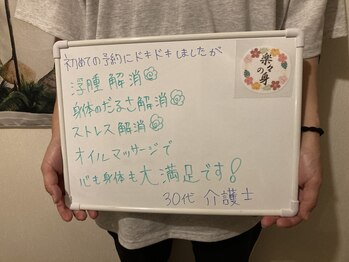 初めての予約にドキドキしましたが
浮腫解消
身体のだるさ解消
ストレス解消
オイルマッサージで
心も身体も大満足です!
30代 介護士
楽々の身